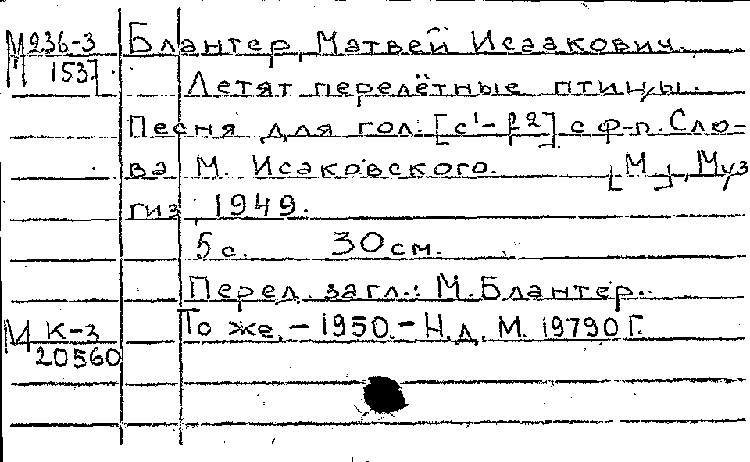 М 236-3 Блантер, Матвей Исаакович.
1537 Летят перелётные птицы.
Песня для гол. [c¹-f2] с ф-п. Сло-
ва М. Исаковского. [М], Муз
гиз, 1949.
5 с. 30 см.
Перед загл.: М. Блантер.
М К-3 То же. - 1950. - Н.д. М. 19790 Г.
20560